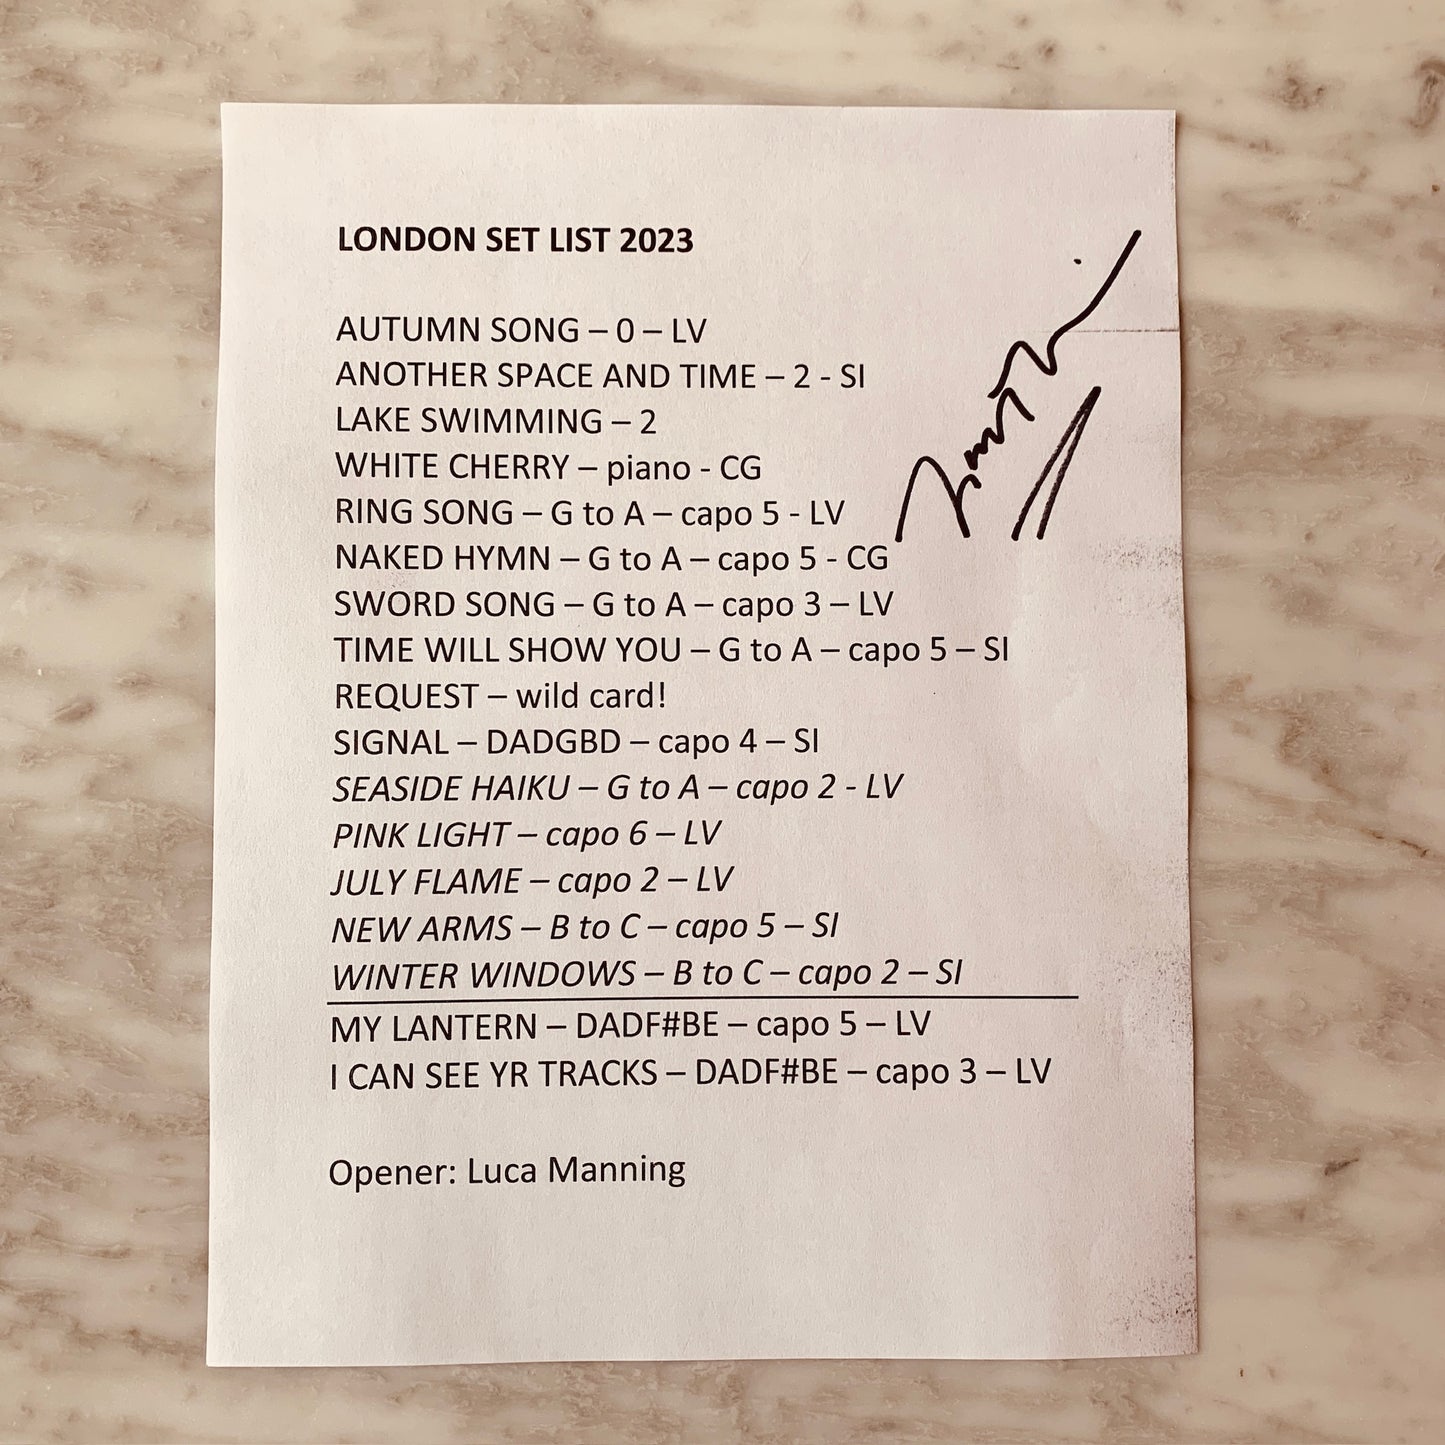 LONDON SET LIST 2023
AUTUMN SONG – 0 – LV
ANOTHER SPACE AND TIME – 2 - SI
LAKE SWIMMING – 2
WHITE CHERRY – piano - CG
RING SONG – G to A – capo 5 - LV
NAKED HYMN – G to A – capo 5 - CG
SWORD SONG – G to A – capo 3 – LV
TIME WILL SHOW YOU – G to A – capo 5 – SI
REQUEST – wild card!
SIGNAL – DADGBD – capo 4 – SI
SEASIDE HAIKU – G to A – capo 2 - LV
PINK LIGHT – capo 6 – LV
JULY FLAME – capo 2 – LV
NEW ARMS – B to C – capo 5 – SI
WINTER WINDOWS – B to C – capo 2 – SI
MY LANTERN – DADF#BE – capo 5 – LV
I CAN SEE YR TRACKS – DADF#BE – capo 3 – LV
Opener: Luca Manning